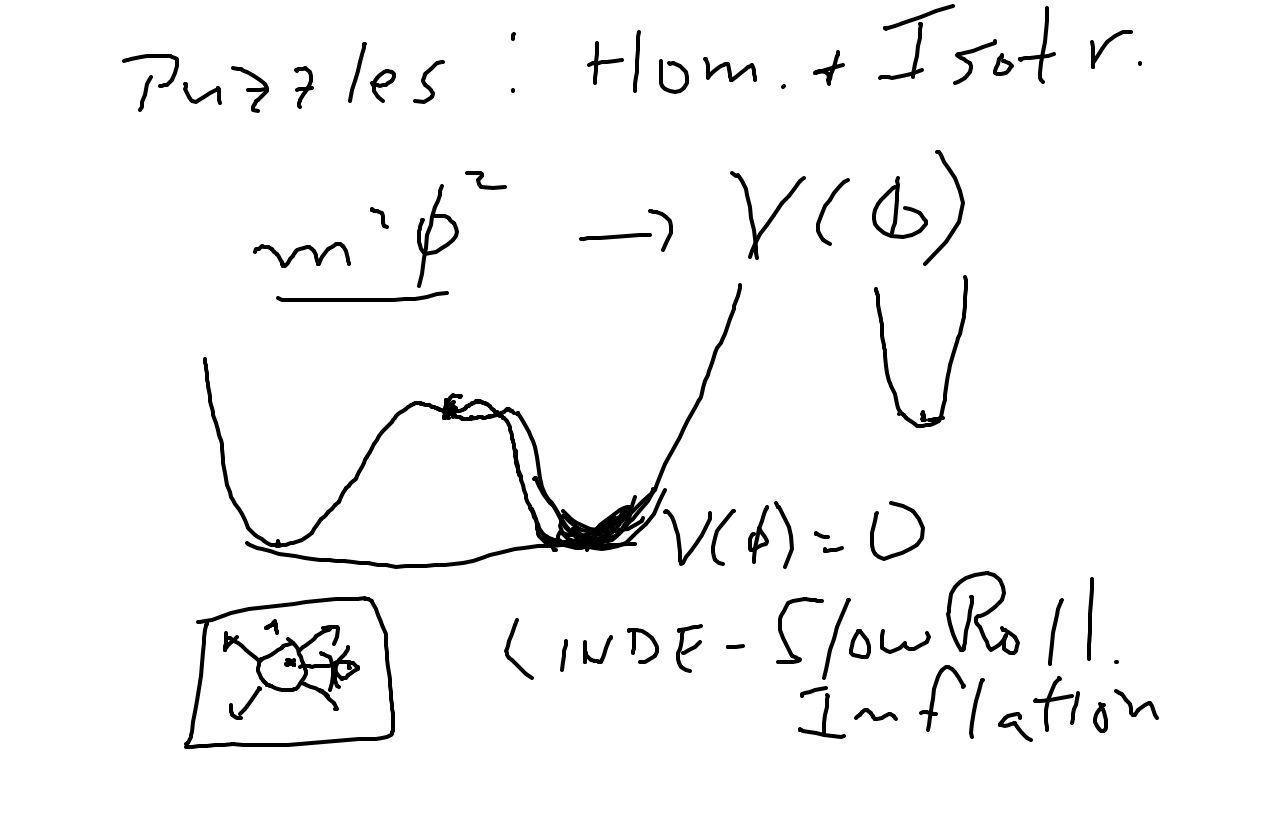 Puzzles : Hom. + Isotr.
m²φ² → V(φ)
V(φ) = 0
LINDE - Slow Roll.
Inflation